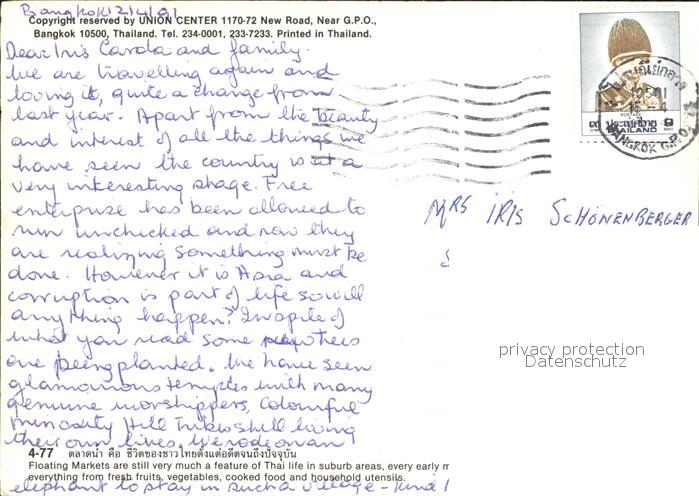 Bangkok 12/4/91
Copyright reserved by UNION CENTER 1170-72 New Road, Near G.P.O.,
Bangkok 10500, Thailand. Tel. 234-0001, 233-7233. Printed in Thailand.
Dear Iris Carola and family.
We are travelling again and
loving it, quite a change from
last year. Apart from the beauty
and interest of all the things we
have seen the country is at a
very interesting stage. Free
enterprise has been allowed to
run unchecked and now they
are realizing something must be
done. However it is Asia and
corruption is part of life so will
anything happen? In spite of
what you read some trees
are being planted. We have seen
glamorous temples with many
genuine worshippers, colourful
minority Hill Tribes still living
their own lives. We rode on an
4-77 ตลาดน้ำ คือ ชีวิตของชาวไทยตั้งแต่อดีตจนถึงปัจจุบัน
Floating Markets are still very much a feature of Thai life in suburb areas, every early m
everything from fresh fruits, vegetables, cooked food and household utensils.
elephant to stay in such a village - kind
POSTAGE
ประเทศไทย
THAILAND
BANGKOK G.P.O.
MRS IRIS SCHÖNENBERGER
privacy protection
Datenschutz